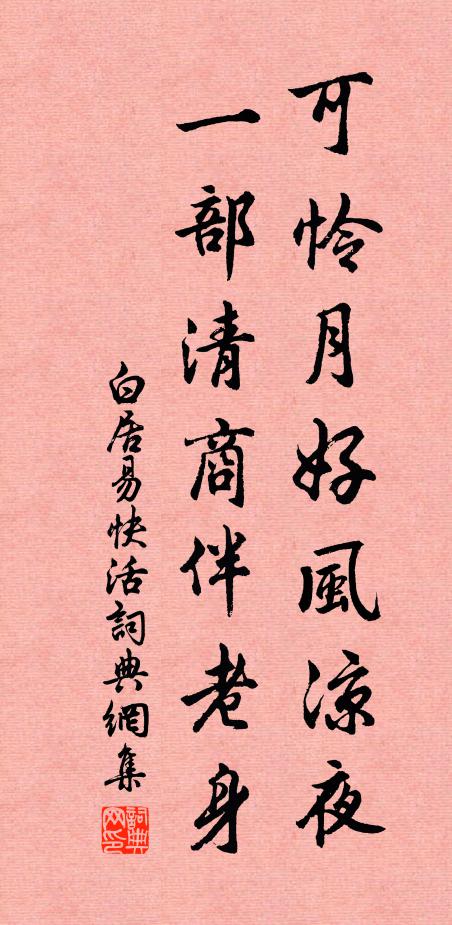 可憐月好風涼夜
一部清商伴老身
白居易快活詞典網集
詞典网印